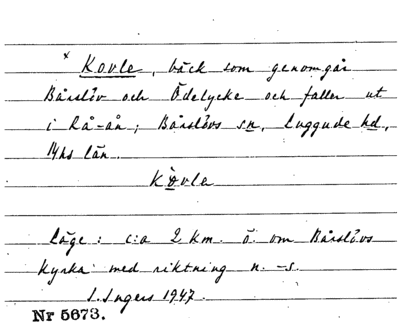 × Kovle, bäck som genomgår
Bårslöv och Ödelycke och faller ut
i Rå-ån; Bårslövs sn, Luggude hd,
Mhs län.
Kòvle
Läge: c:a 2 km. ö. om Bårslövs
kyrka med riktning n. -s.
I. Ingers 1947.
Nr 5673.